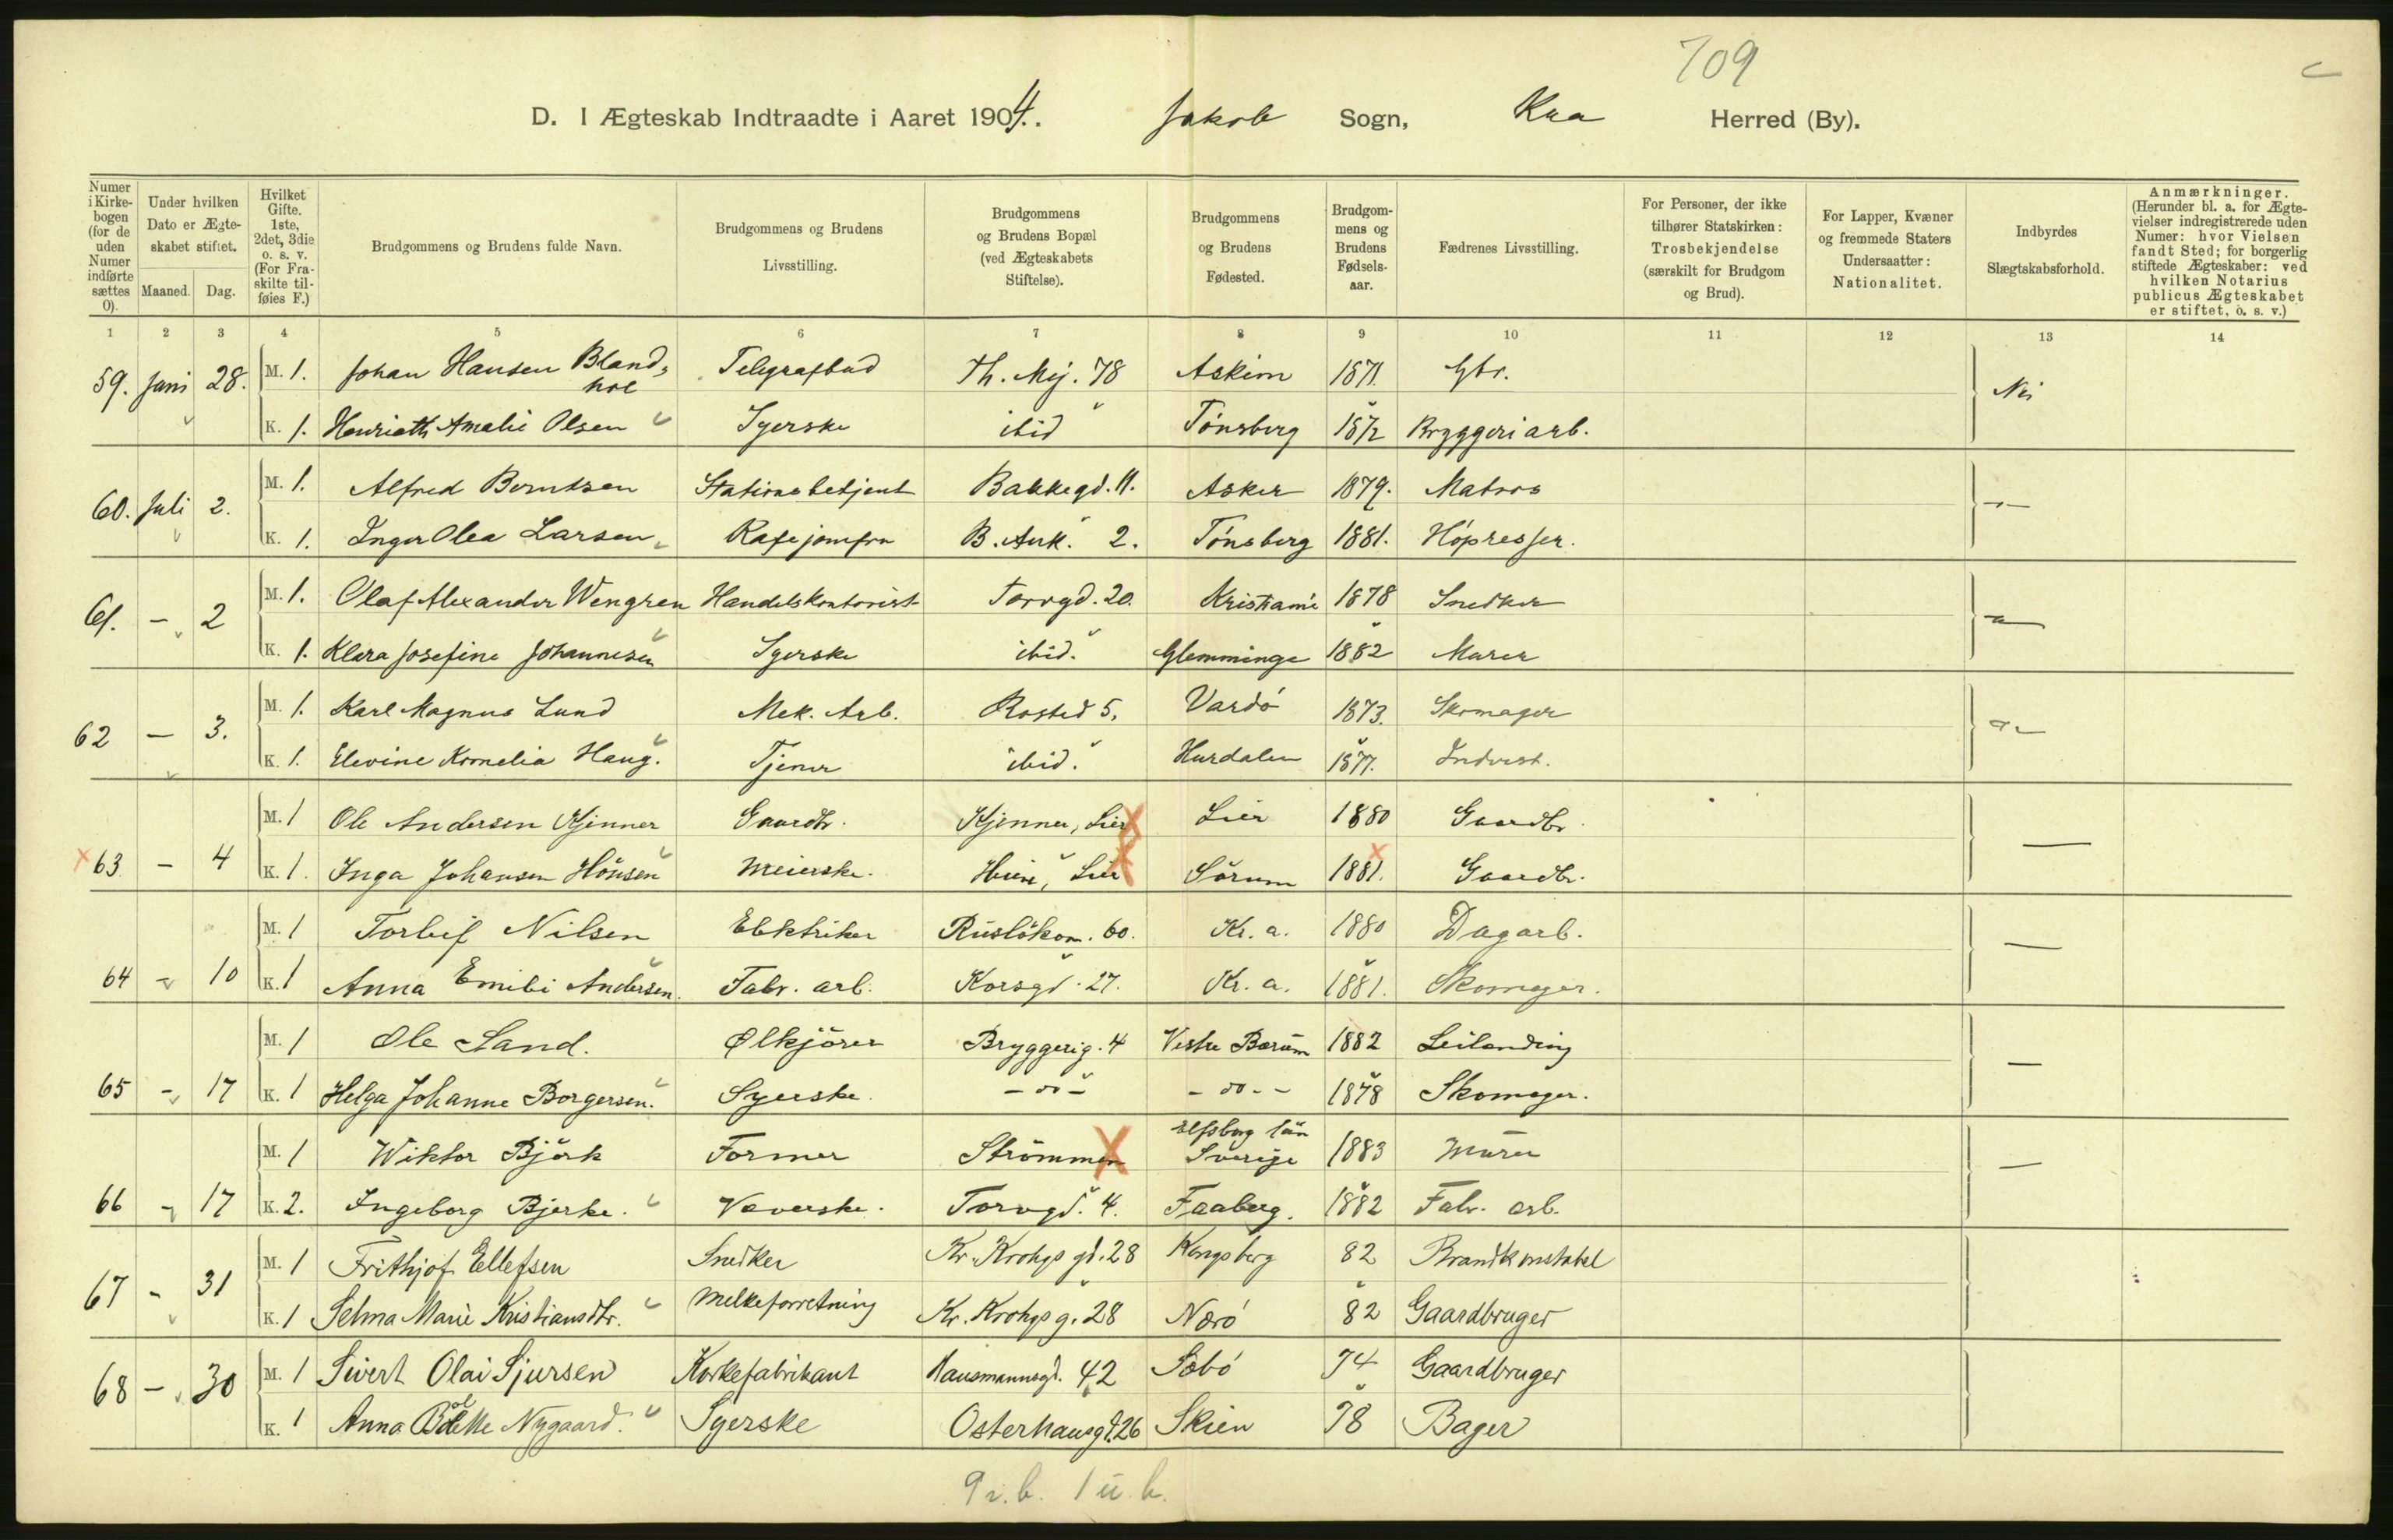 709
D. I Ægteskab Indtraadte i Aaret 1904. Jakob Sogn, Kra Herred (By).
Numer i Kirkebogen (for de uden Numer indførte sættes 0).
Under hvilken Dato er Ægteskabet stiftet.
Maaned. Dag.
Hvilket Gifte. 1ste, 2det, 3die o. s. v. (For Fraskilte tilføies F.)
Brudgommens og Brudens fulde Navn.
Brudgommens og Brudens Livsstilling.
Brudgommens og Brudens Bopæl (ved Ægteskabets Stiftelse).
Brudgommens og Brudens Fødested.
Brudgommens og Brudens Fødselsaar.
Fædrenes Livsstilling.
For Personer, der ikke tilhører Statskirken: Trosbekjendelse (særskilt for Brudgom og Brud).
For Lapper, Kvæner og fremmede Staters Undersaatter: Nationalitet.
Indbyrdes Slægtskabsforhold.
Anmærkninger. (Herunder bl. a. for Ægtevielser indregistrerede uden Numer: hvor Vielsen fandt Sted; for borgerlig stiftede Ægteskaber: ved hvilken Notarius publicus Ægteskabet er stiftet, o. s. v.)
1 2 3 4 5 6 7 8 9 10 11 12 13 14
59. Juni 28. M. 1. Johan Hansen Bland- Telegrafbud Th. Mej. 78 Askim 1871. Gbr. Nei
hol
K. 1. Henriette Amalie Olsen Syerske ibid Tønsberg 1872 Bryggeriarb.
60. Juli 2. M. 1. Alfred Berntsen Stationsbetjent Bakkegd. 11. Asker 1879. Matros
K. 1. Inger Olea Larsen Kafejomfru B. Ank. 2. Tønsberg 1881. Høpresser.
61. - 2 M. 1. Olaf Alexander Wengren Handelskontorist Torvgd. 20. Kristiania 1878 Snedker
K. 1. Klara Josefine Johannesen Syerske ibid. Glemminge 1882 Murer
62 - 3. M. 1. Karl Magnus Lund Mek. Arb. Rosted 5. Vardø 1873. Skomager
K. 1. Elevine Kornelia Haug. Tjener ibid. Hurdalen 1877. Inderst.
63 - 4 M. 1 Ole Andersen Kjenner Gaardbr. Kjenner, Lier Lier 1880 Gaardbr
K. 1. Inga Johansen Hønsen Meierske. Lier Sørum 1881. Gaardbr.
64 - 10 M. 1 Torleif Nilsen Elektriker Rusløkom. 60. Kr. a. 1880 Dagarb.
K. 1 Anna Emilie Andersen. Fabr. arb. Korsgd. 27. Kr. a. 1881. Skomager.
65 - 17 M. 1 Ole Sand. Ølkjører Bryggerig. 4 Vestre Bærum 1882 Leilending
K. 1 Helga Johanne Borgersen. Syerske. - do - - do - - 1878 Skomager.
66 - 17 M. 1 Wiktor Björk Former Strømmen Elfsborg län Sverige 1883 Murer
K. 2. Ingeborg Bjerke. Væverske. Torvgd. 4. Faaberg. 1882 Fabr. arb.
67 - 31 M. 1 Frithjof Ellefsen Snedker Kr. Krohgs gd. 28 Kongsberg 82 Brandkonstabel
K. 1 Selma Marie Kristiansdtr. Melkeforretning Kr. Krohgs g. 28 Nærø 82 Gaardbruger
68 - 30 M. 1 Sivert Olai Sjursen Korkefabrikant Hausmannsgd. 42 Søbø 74 Gaardbruger
K. 1 Anna Nygaard. Syerske Osterhausgd. 26 Skien 78 Bager
9 i. b. 1 u. b.